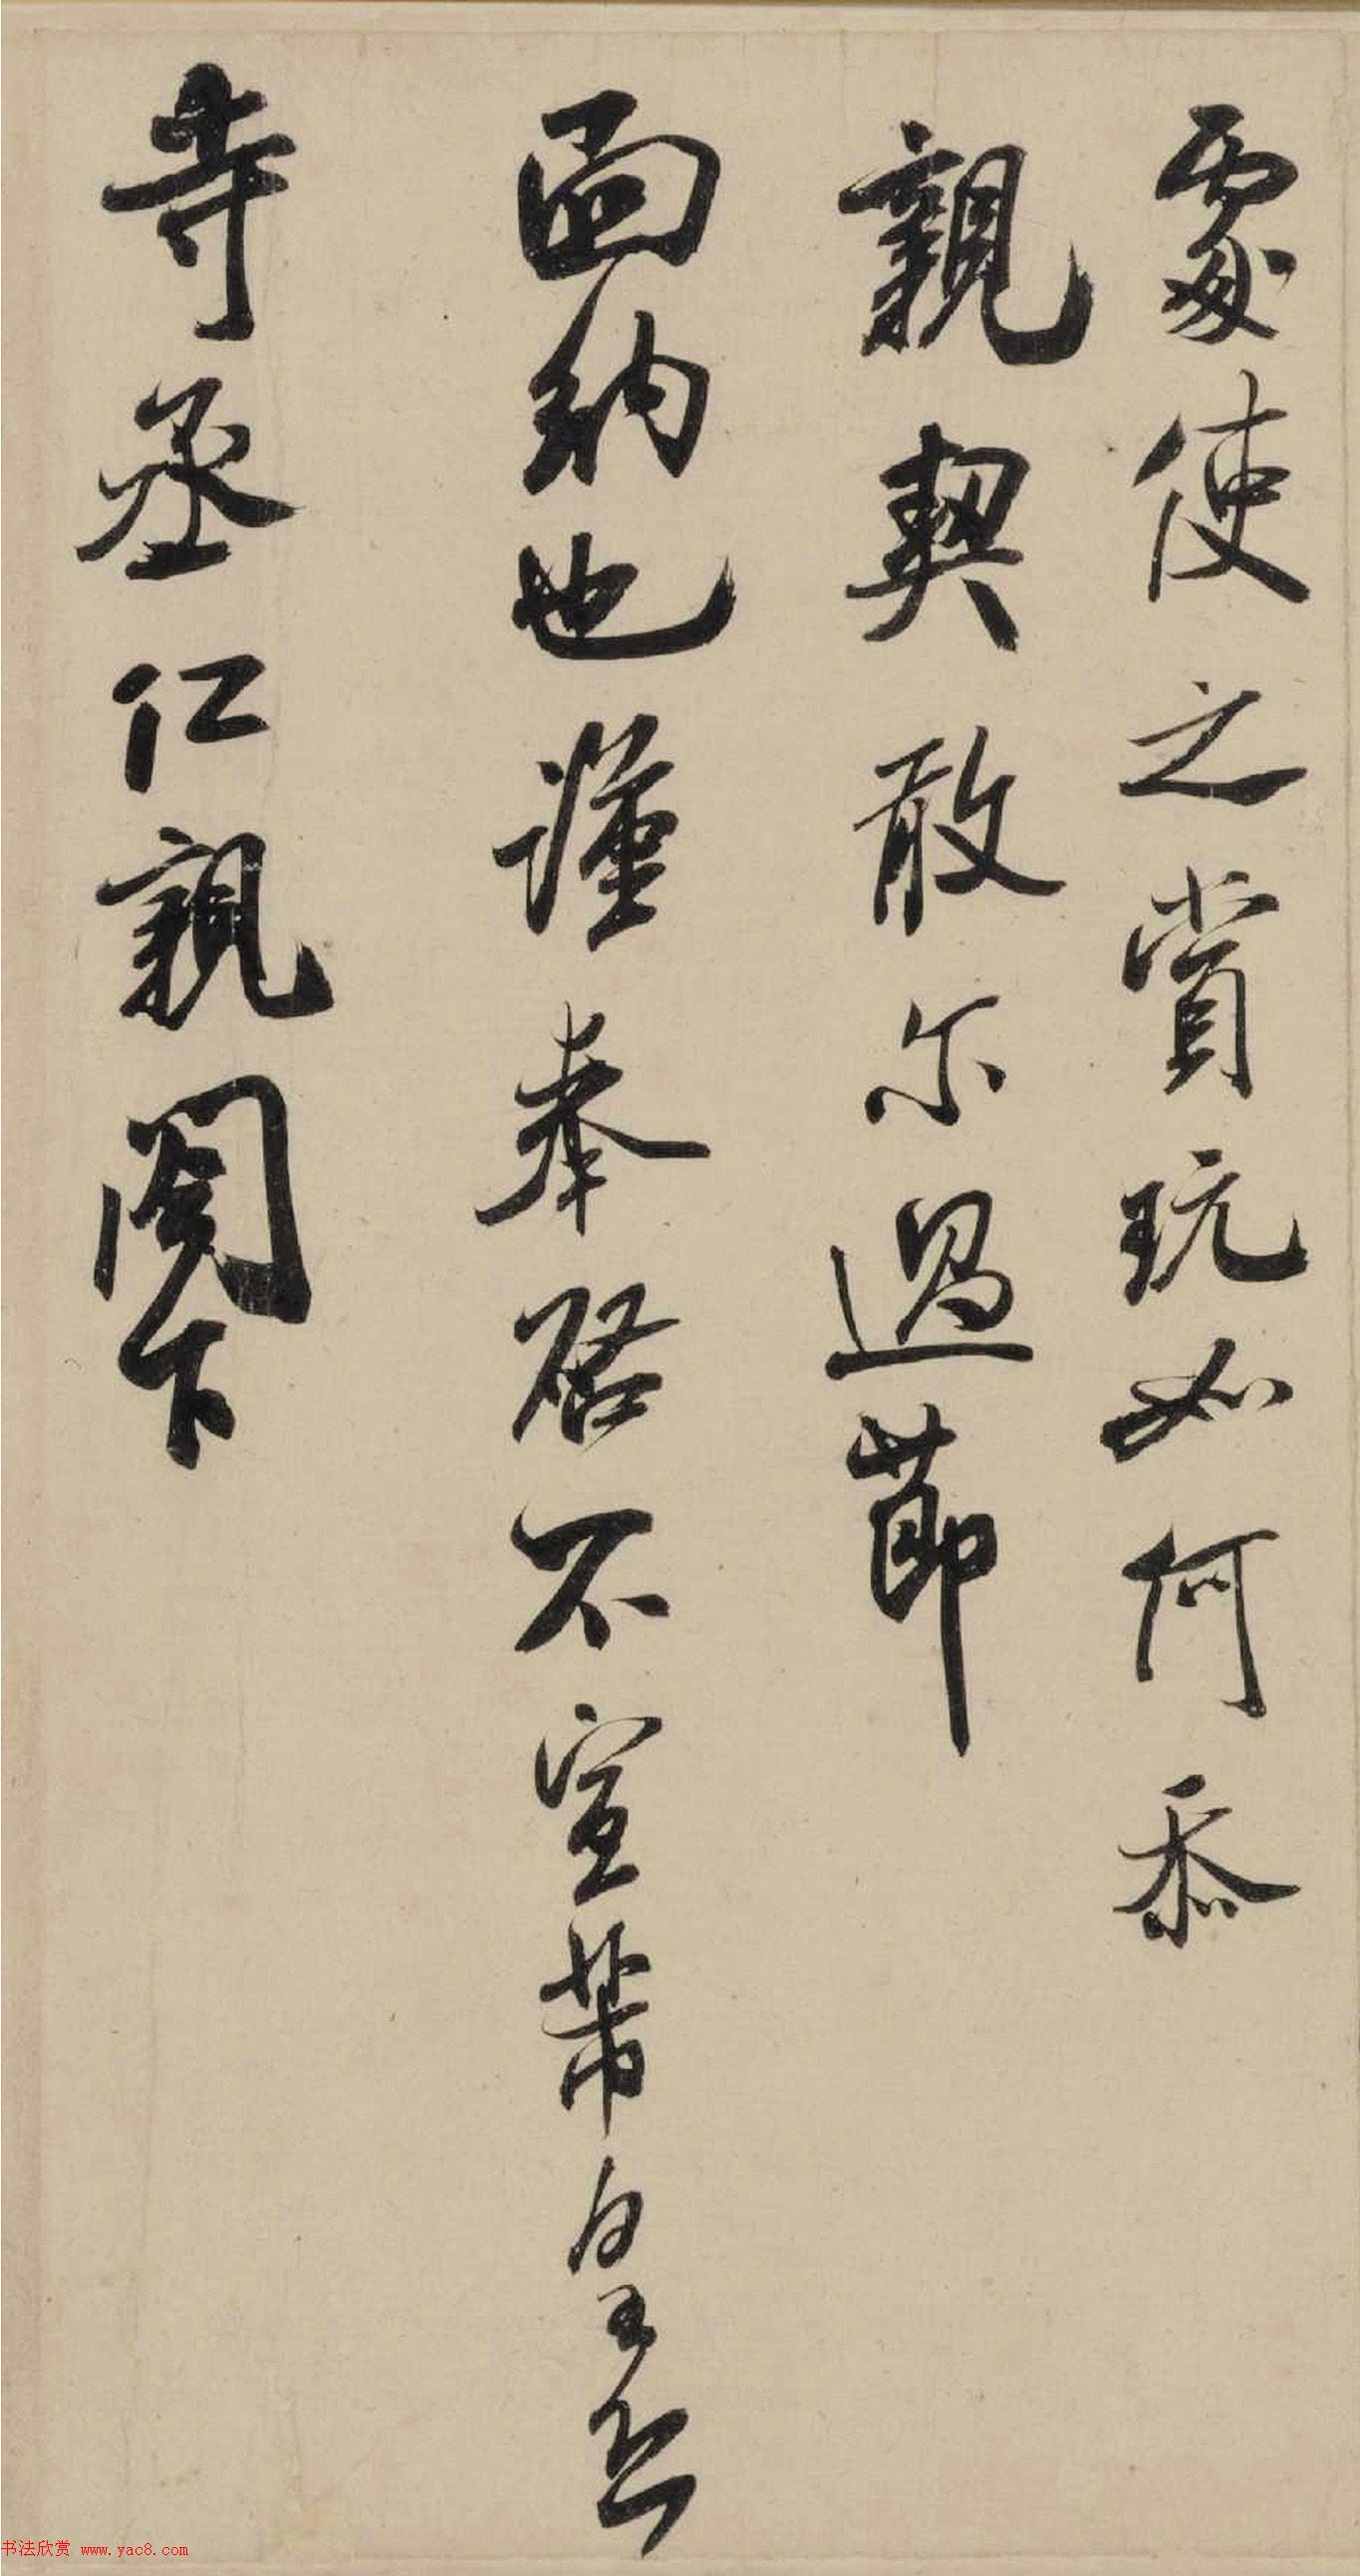 處使之賞玩如何忝
親契敢尔過節
面納也謹奉啓不宣芾皇恐
寺丞仁親閣下
书法欣赏 www.yac8.com